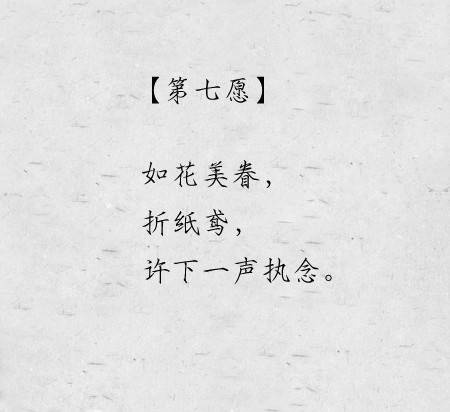 【第七愿】
如花美眷，
折纸鸢，
许下一声执念。